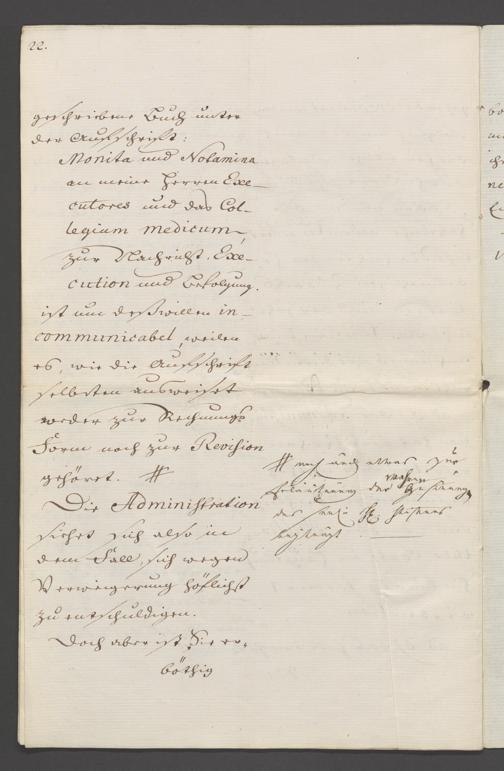 22.
geschriebene Buch unter
der Auffschrifft:
Monita und Notamina
an meine Herren Exe-
cutores und das Col-
legium medicum,
zur Nachricht, Exe-
cution und Befolgung.
ist um deßwillen in-
communicabel, weilen
es, wie die Auffschrifft
selbsten ausweiset
weder zur Rechnungs
Form noch zur Revision
gehöret. #
Die Administration
siehet sich also in
dem Fall, sich wegen
Verweigerung höflichst
zu entschuldigen.
Doch aber ist Sie er-
böthig
# noch auch etwas zur
Erläuterung der wahren Gesinnung
des seel. H. Stifters
beyträgt.